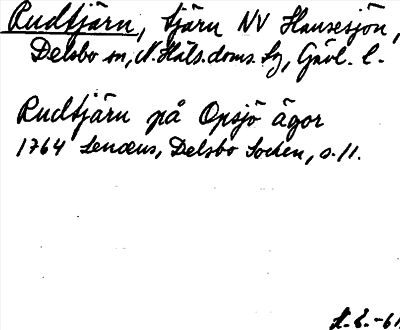 Rudtjärn, tjärn NV Hansesjön,
Delsbo sn, N. Häls. doms. sg, Gävl. l.
Rudtjärn på Opsjö ägor
1764 Lenæus, Delsbo Socken, s. 11.